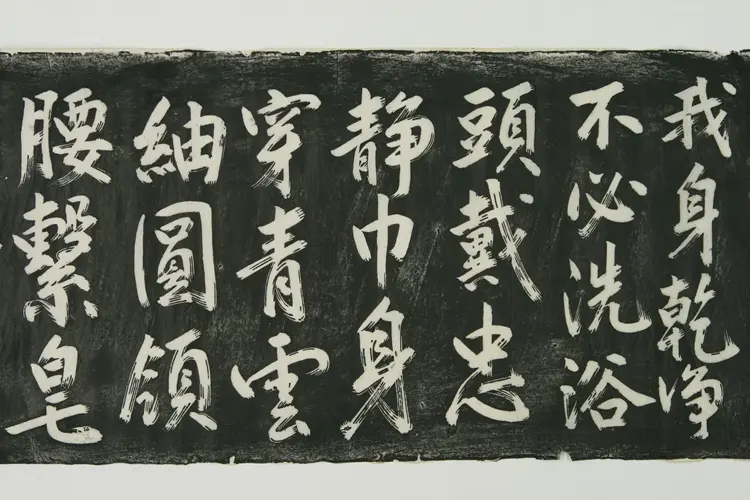 我身乾净
不必洗浴
頭戴忠
静巾身
穿青雲
紬圓領
腰繫皂